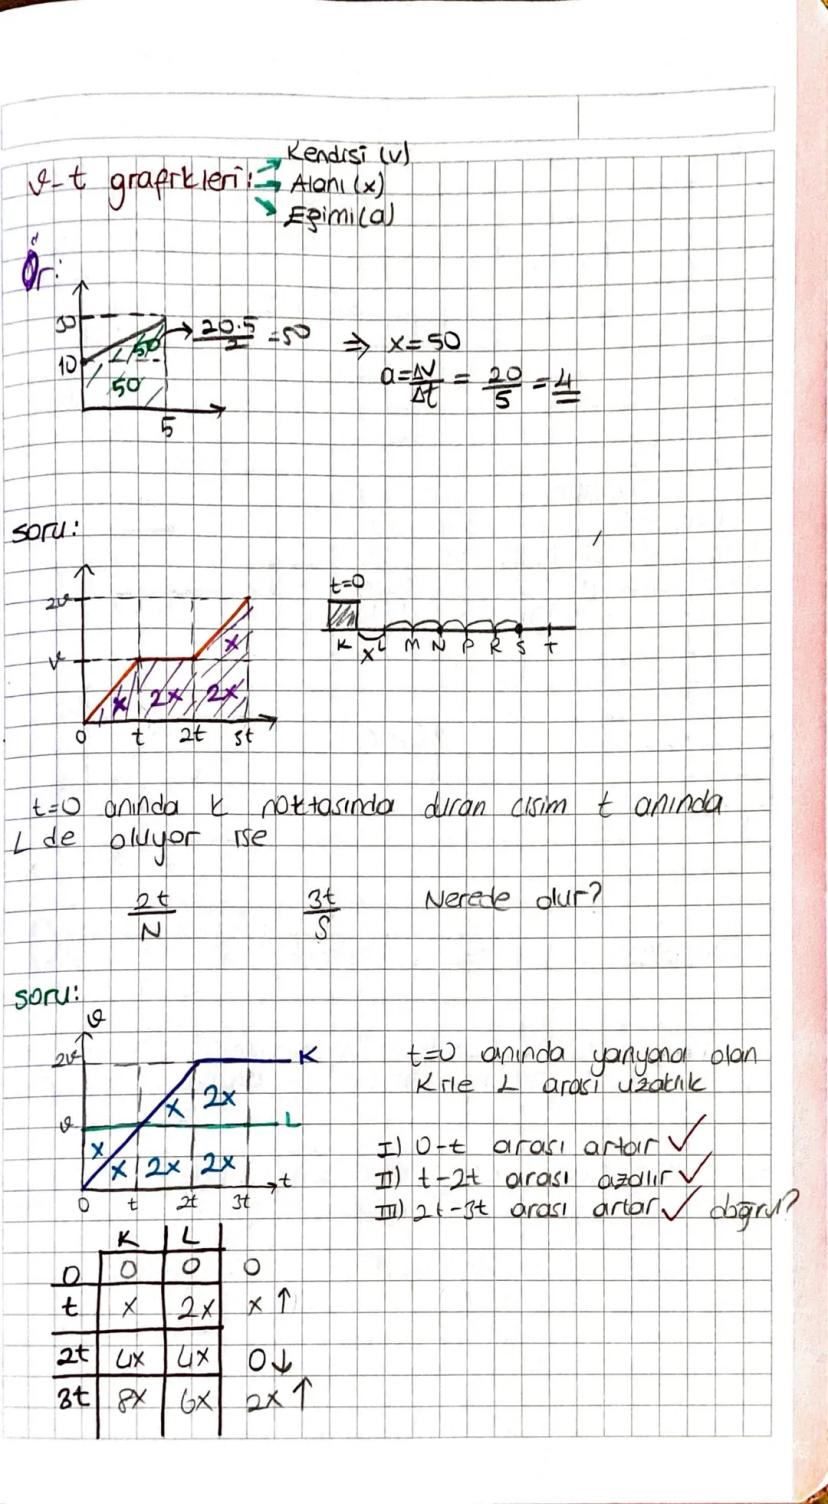 ϑ-t grafikleri:
Kendisi (v)
Alanı (x)
Eğimi (a)
Ör:
30
10
50
50
5
20.5/2 = 50 ⇒ x=50
a = ΔV/Δt = 20/5 = 4
soru:
2ϑ
ϑ
x 2x 2x
x
0 t 2t 3t
t=0
K x L M N P R S T
t=0 anında K noktasında duran cisim t anında
L de oluyor ise
2t/N 3t/S Nerede olur?
soru:
ϑ
2ϑ
ϑ
K
L
x 2x
x
x 2x 2x
0 t 2t 3t
t
t=0 anında yanyana olan
K ile L arası uzaklık
I) 0-t arası artar ✓
II) t-2t arası azalır ✓
III) 2t-3t arası artar ✓ doğru?
K L
0 0 0 0
t x 2x x ↑
2t 4x 4x 0 ↓
3t 8x 6x 2x ↑